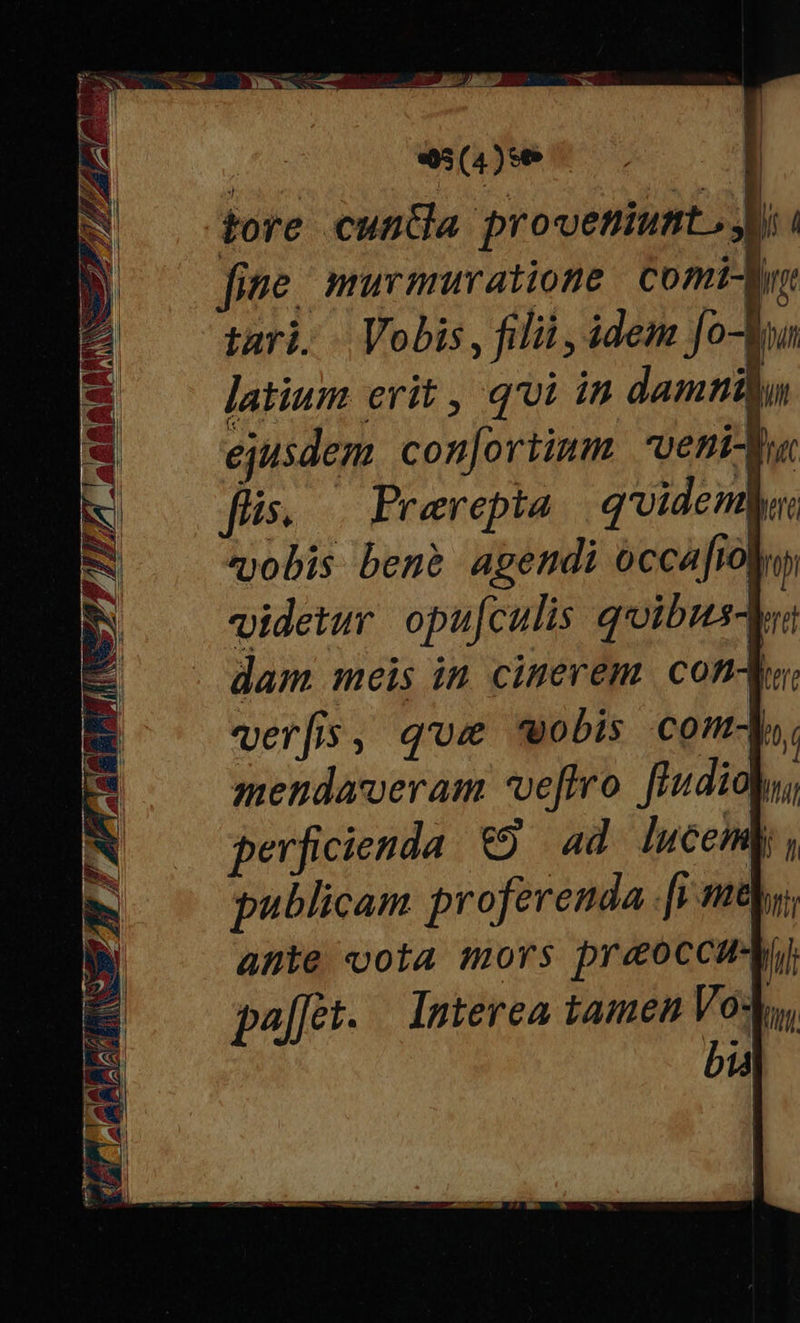 (4)
tore cuncta proveniunt,
ſine murmuratione comi-
tari. Vobis, filii, idem ſo-
latium erit, qvi in damni
ejusdem conſortium veni-
ſtis. Prærepta qvidem
vobis benè agendi occaſio
videtur opuſculis qvibus-
dam meis in cinerem con-
verſis, qvæ vobis com-
mendaveram veſtro ſtudio
perficienda & ad lucem
publicam proferenda ſi me
ante vota mors præoccu-
paſſet. Interea tamen Vo-
bis